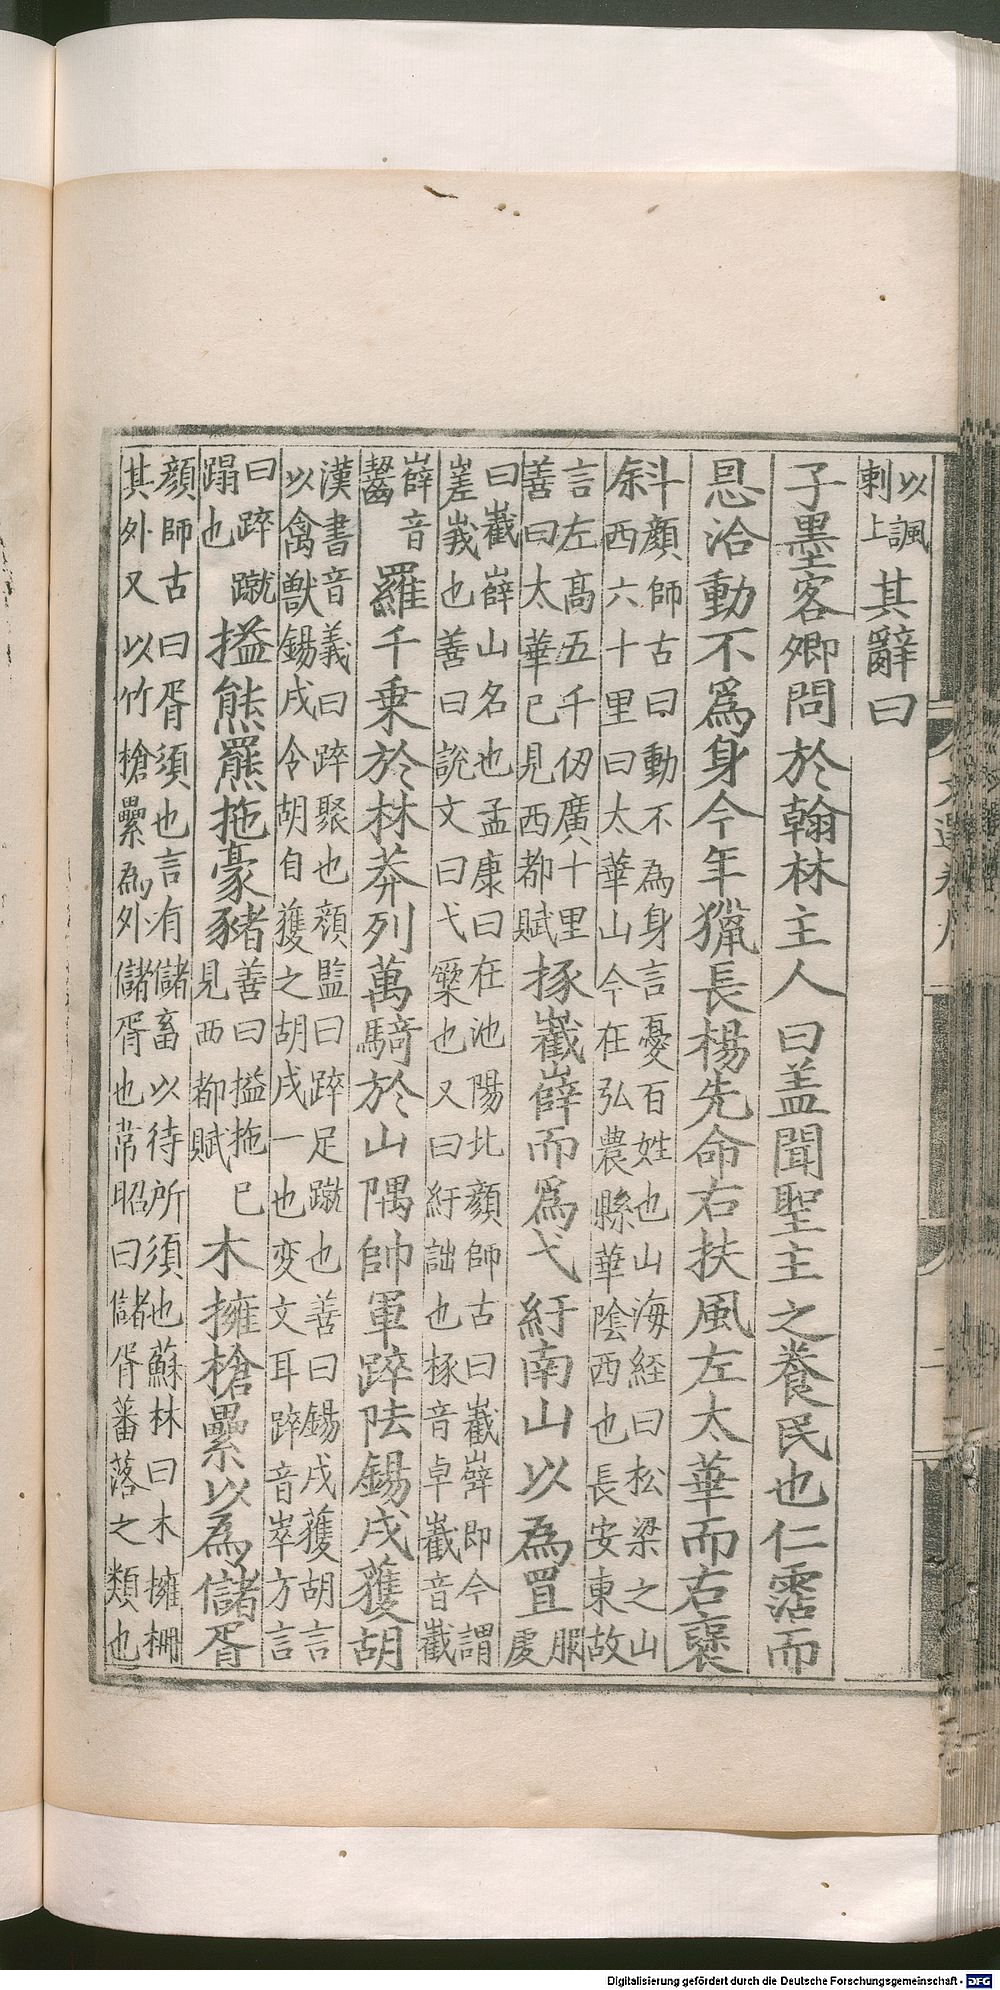 以諷
刺上
其辭曰
子墨客卿問於翰林主人曰盖聞聖主之養民也仁霑而
恩洽動不為身今年獵長楊先命右扶風左太華而右褒
斜顔師古曰動不為身言憂百姓也山海経曰松梁之山
余西六十里曰太華山今在弘農縣華陰西也長安東故
言左髙五千仞廣十里
善曰太華已見西都賦
椓嶻嶭而為弋紆南山以為罝
服虔
曰嶻嶭山名也孟康曰在池陽北顔師古曰嶻嶭即今謂
嵳峩也善曰說文曰弋橜也又曰紆詘也椓音卓嶻音截
嶭音
齧
羅千乗於林莽列萬騎於山隅帥軍踤阹錫戎獲胡
漢書音義曰踤聚也顔監曰踤足蹴也善曰錫戎獲胡言
以禽獸錫戎令胡自獲之胡戎一也変文耳踤音崒方言
曰踤蹴
蹋也
搤熊羆拖豪豬
善曰搤拖已
見西都賦
木擁槍纍以為儲胥
顔師古曰胥須也言有儲畜以待所須也蘇林曰木擁柵
其外又以竹槍纍為外儲胥也韋昭曰儲胥蕃落之類也
Digitalisierung gefördert durch die Deutsche Forschungsgemeinschaft - DFG